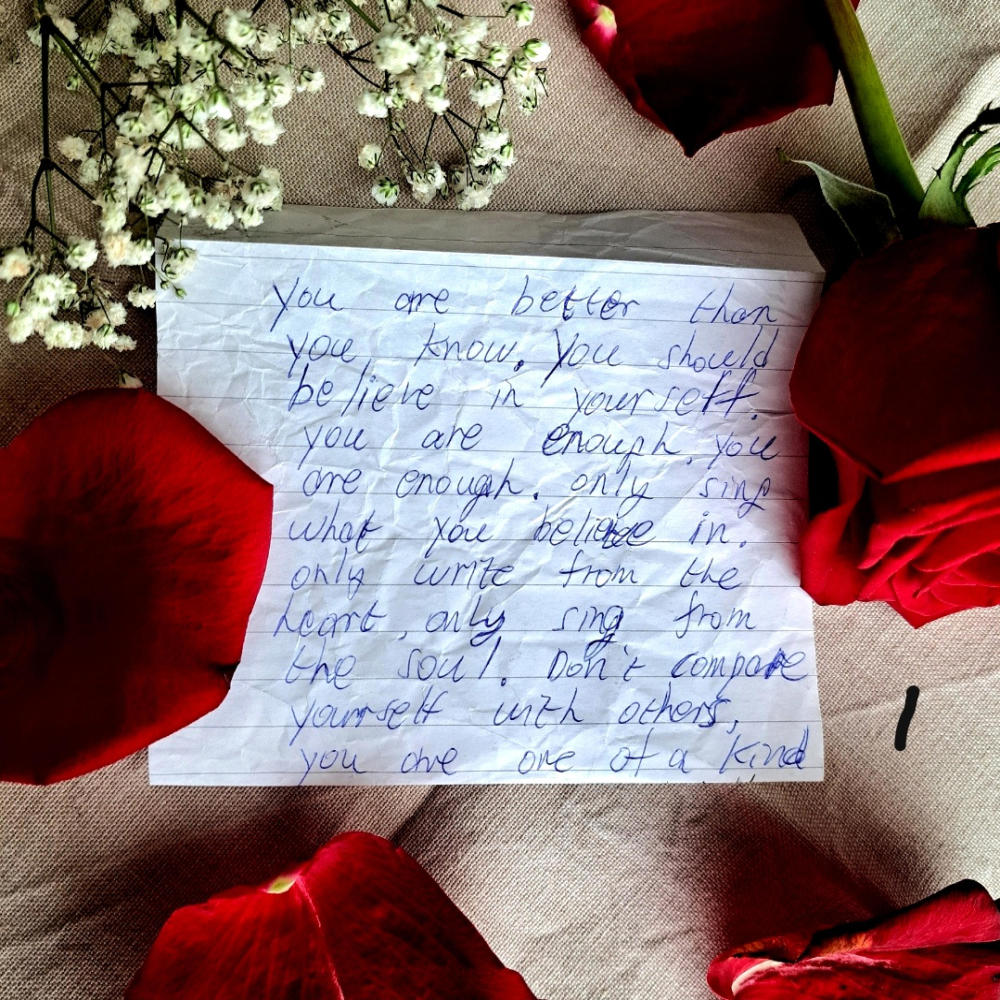 you are better than
you know. You should
believe in yourself.
you are enough. you
are enough. only sing
what you believe in.
only write from the
heart, only sing from
the soul. Don't compare
yourself with others,
you are one of a kind